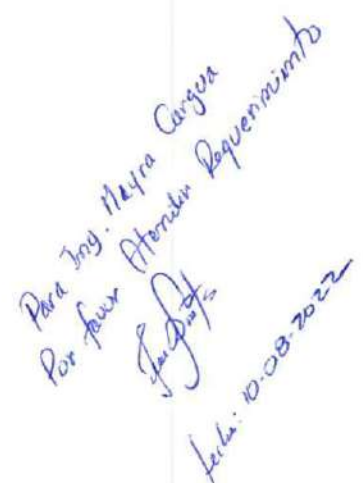 Para Ing. Mayra Cargua
Por favor Atender Requerimiento
fecha: 10-08-2022